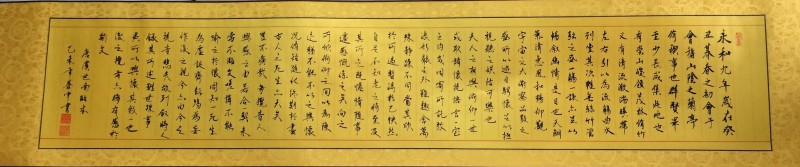 永和九年歲在癸
丑暮春之初會于
會稽山陰之蘭亭
脩禊事也群賢畢
至少長咸集此地也
有崇山峻領茂林脩竹
又有清流激湍暎帶
左右引以為流觴曲水
列坐其次雖無絲竹管
弦之盛一觴一詠亦足以
暢敘幽情是日也天朗
氣清惠風和暢仰觀
宇宙之大俯察品類之
盛所以遊目騁懷足以極
視聽之娛信可樂也
夫人之相與俯仰一世
或取諸懷抱悟言一室
之內或因寄所託放
浪形骸之外雖趣舍萬
殊靜躁不同當其欣
於所遇暫得於己怏然
自足不知老之將至及
其所之既惓情隨事
遷感慨係之矣向之
所欣俛仰之間以為陳
迹猶不能不以之興懷
況脩短隨化終期於盡
古人云死生亦大矣
豈不痛哉每攬昔人
興感之由若合一契未
嘗不臨文嗟悼不能
喻之於懷固知一死生
為虛誕齊彭殤為妄
作後之視今亦由今之
視昔悲夫故列敘時人
錄其所述雖世殊事
異所以興懷其致一也
後之攬者亦將有感於
斯文
唐虞世南臨本
乙未年春中書